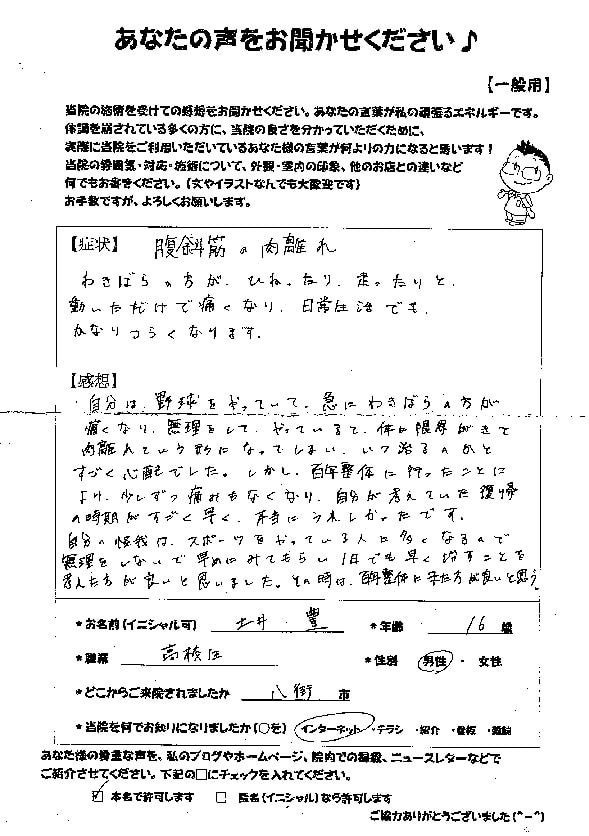 あなたの声をお聞かせください♪
【一般用】
当院の施術を受けての感想をお聞かせください。あなたの言葉が私の頑張るエネルギーです。
体調を崩されている多くの方に、当院の良さを分かっていただくために、
実際に当院をご利用いただいているあなた様の言葉が何よりの力になると思います！
当院の雰囲気・対応・施術について、外観・室内の印象、他のお店との違いなど
何でもお書きください。(文やイラストなんでも大歓迎です)
お手数ですが、よろしくお願いします。
【症状】 腹斜筋の肉離れ
わきばらの方が、ひねったり、走ったりと、
動いただけで痛くなり、日常生活でも、
かなりつらくなります。
【感想】
自分は、野球をやっていて、急にわきばらの方が
痛くなり、無理をして、やっていると、体に限界がきて
肉離れという形になってしまい、いつ治るのかと
すごく心配でした。しかし、百年整体に行ったことに
より、少しずつ痛みもなくなり、自分が考えていた復帰
の時期がすごく早く、本当にうれしかったです。
自分の怪我は、スポーツをやっている人に多くなるので
無理をしないで早めにみてもらい1日でも早く治すことを
考えた方が良いと思いました。その時は、百年整体に来た方が良いと思う
*お名前(イニシャル可) 土井 豊 *年齢 16 歳
*職業 高校生 *性別 男性・女性
*どこからご来院されましたか 八街 市
*当院を何でお知りになりましたか(○を) インターネット・チラシ・紹介・看板・雑誌
あなた様の貴重な声を、私のブログやホームページ、院内での掲載、ニュースレターなどで
ご紹介させてください。下記の□にチェックを入れてください。
☑ 本名で許可します □ 匿名(イニシャル)なら許可します
ご協力ありがとうございました(^-^)